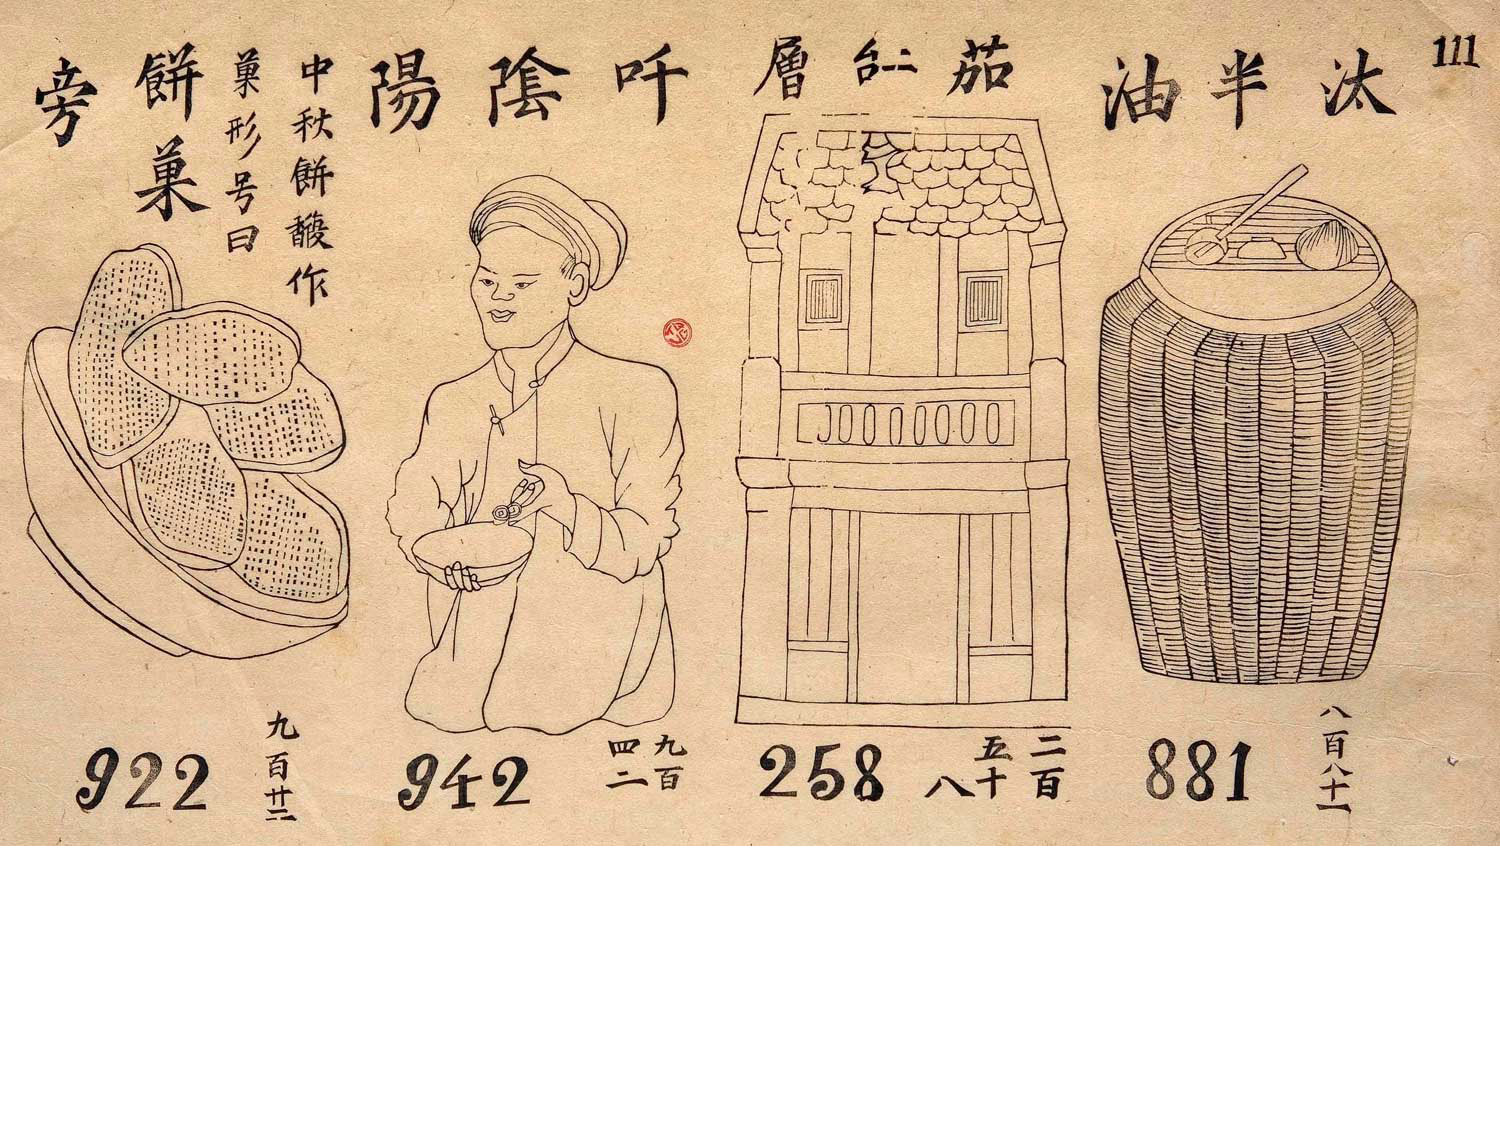 111
汰半油
茄𠄩層
吀陰陽
中秋餅䭃作
菓形号曰
餅菓
旁
881
八百八十一
258
二百
五十
八
942
九百
四二
922
九百廿二